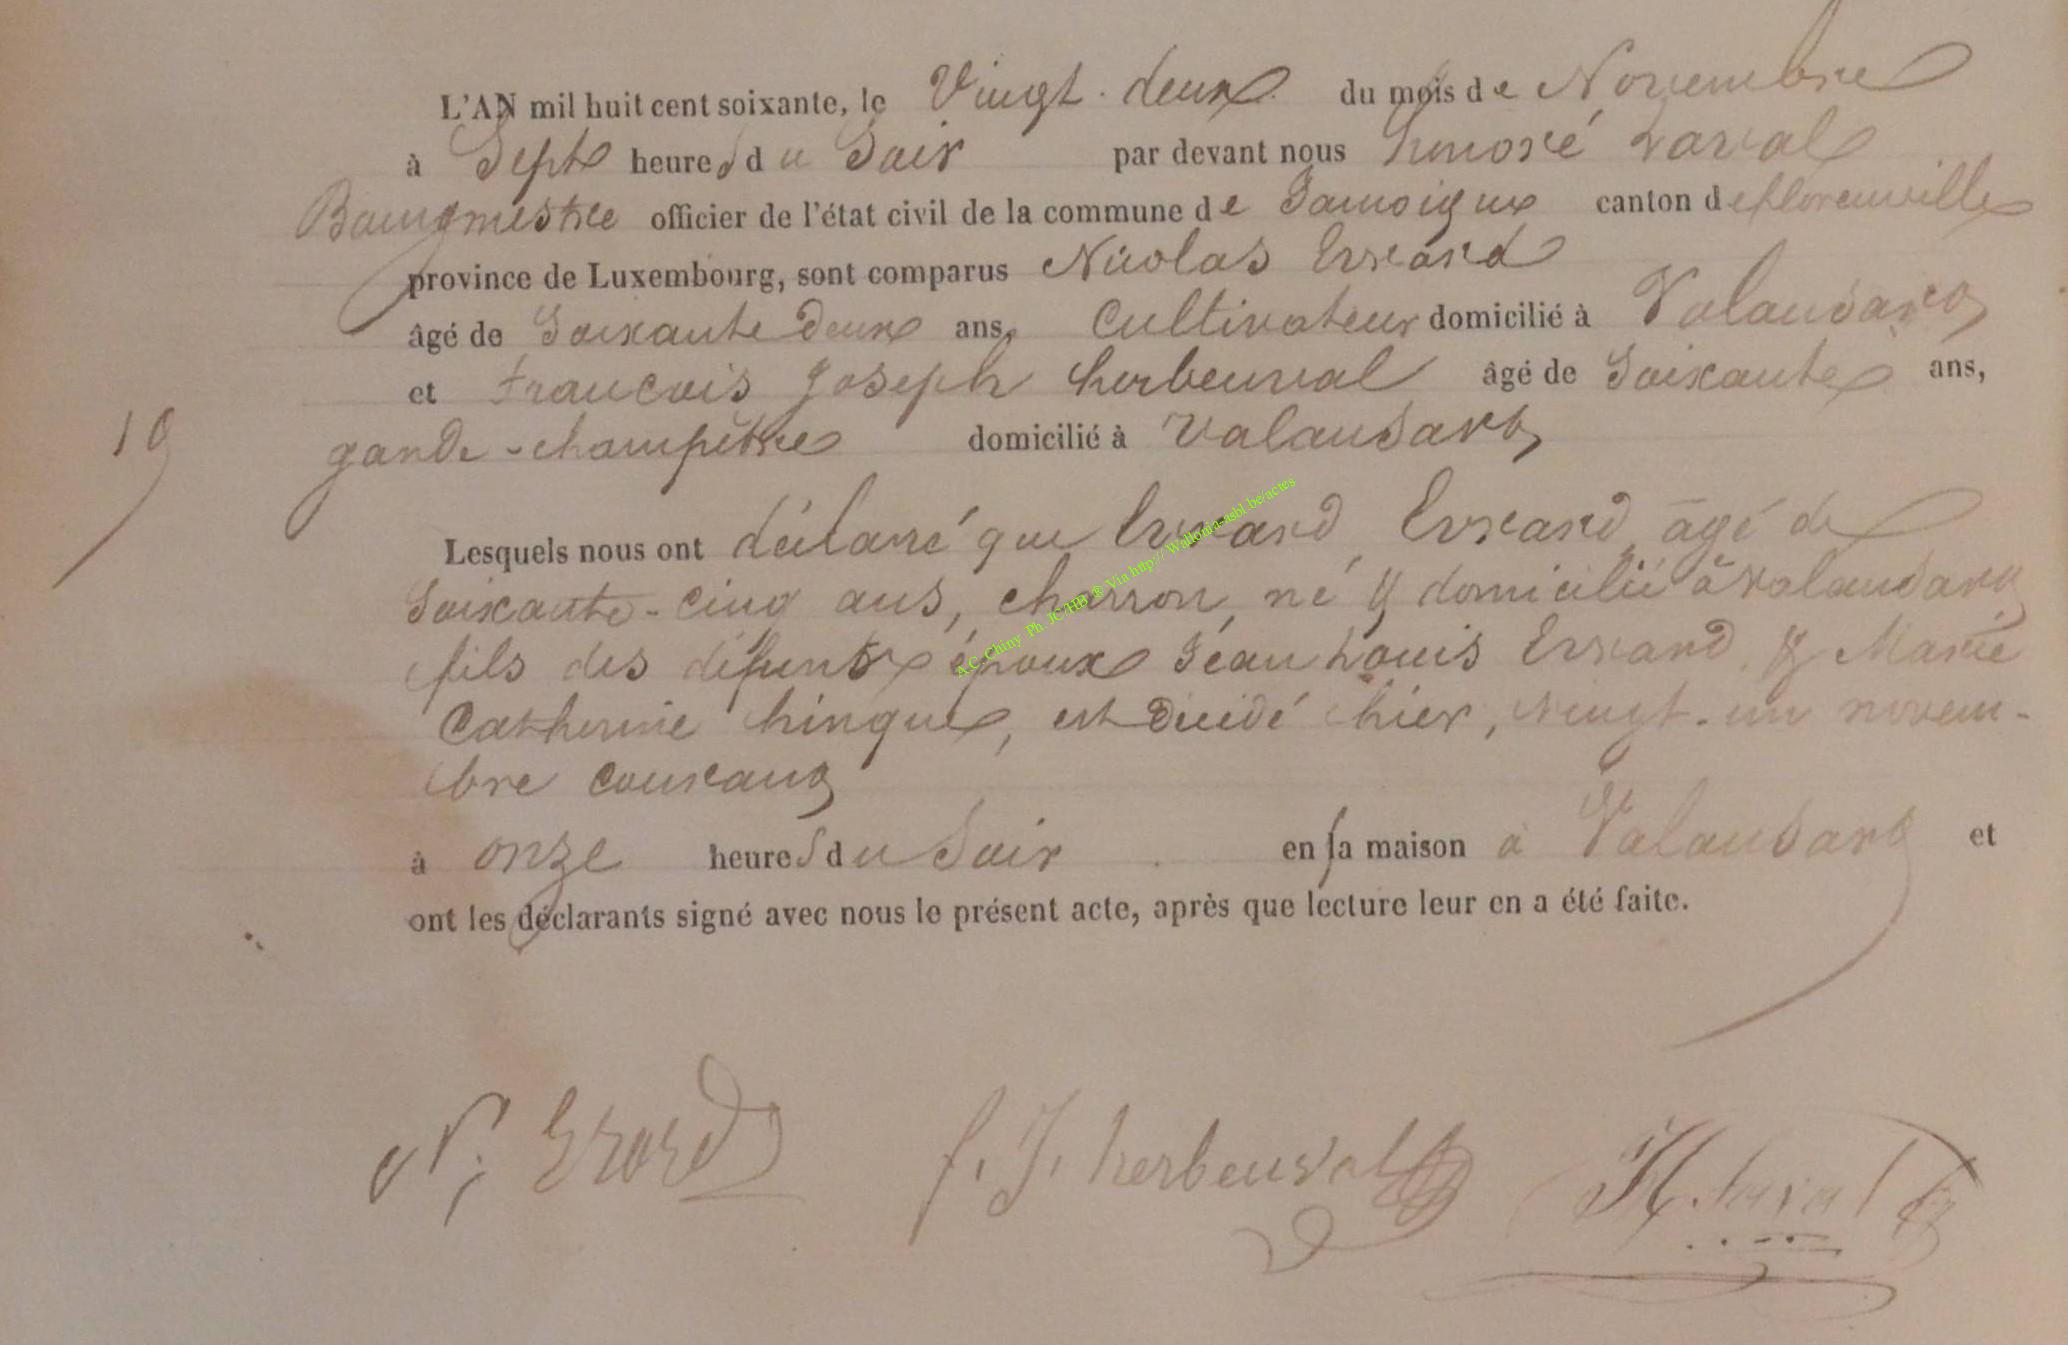 L'AN mil huit cent soixante, le Vingt-deux du mois de Novembre
à Sept heures du Soir par devant nous honoré Laval
Bourgmestre officier de l'état civil de la commune de Jamoigne canton de florenville
province de Luxembourg, sont comparus Nicolas Errard
âgé de Soixante deux ans, Cultivateur domicilié à Valansart
et francois Joseph herbeuval âgé de Soixante ans,
garde-champêtre domicilié à Valansart
19
Lesquels nous ont déclaré que Errard, Errard, âgé de
Soixante-cinq ans, charron, né & domicilié à Valansart
fils des défunts époux Jean Louis Errard & Marie
Catherine hinque, est décidé hier, vingt-un novem-
bre courant
à onze heures du Soir en sa maison à Valansart et
ont les déclarants signé avec nous le présent acte, après que lecture leur en a été faite.
N. Erard f. J. herbeuval H. Laval
A.C. Chiny Ph JC/HB ® Via http://Wallonia-asbl.be/actes